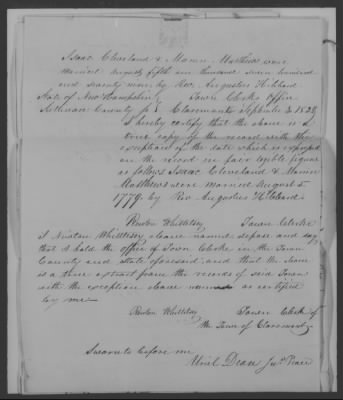 Isaac Cleveland & Mamre Matthews were
married August fifth one thousand seven hundred
and seventy nine by Rev. Augustus Hibbard
State of New Hampshire } Town Clerks Office
Sullivan County ss } Claremont September 3 1838
I hereby certify that the above is a
true copy of the record with the
exception of the date which is expressed
on the record in fair legible figures
as follows Isaac Cleveland & Mamre
Matthews were married August 5
1779 by Rev Augustus Hibbard.
Newton Whittlesey Town Clerk
I Newton Whittlesey above named depose and say
that I hold the office of Town Clerk in the Town
County and State aforesaid and that the above
is a true extract from the records of said Town
with the exception above named as certified
by me
Newton Whittlesey Town Clerk of
the Town of Claremont
Sworn to before me
Uriel Dean Jus. Peace